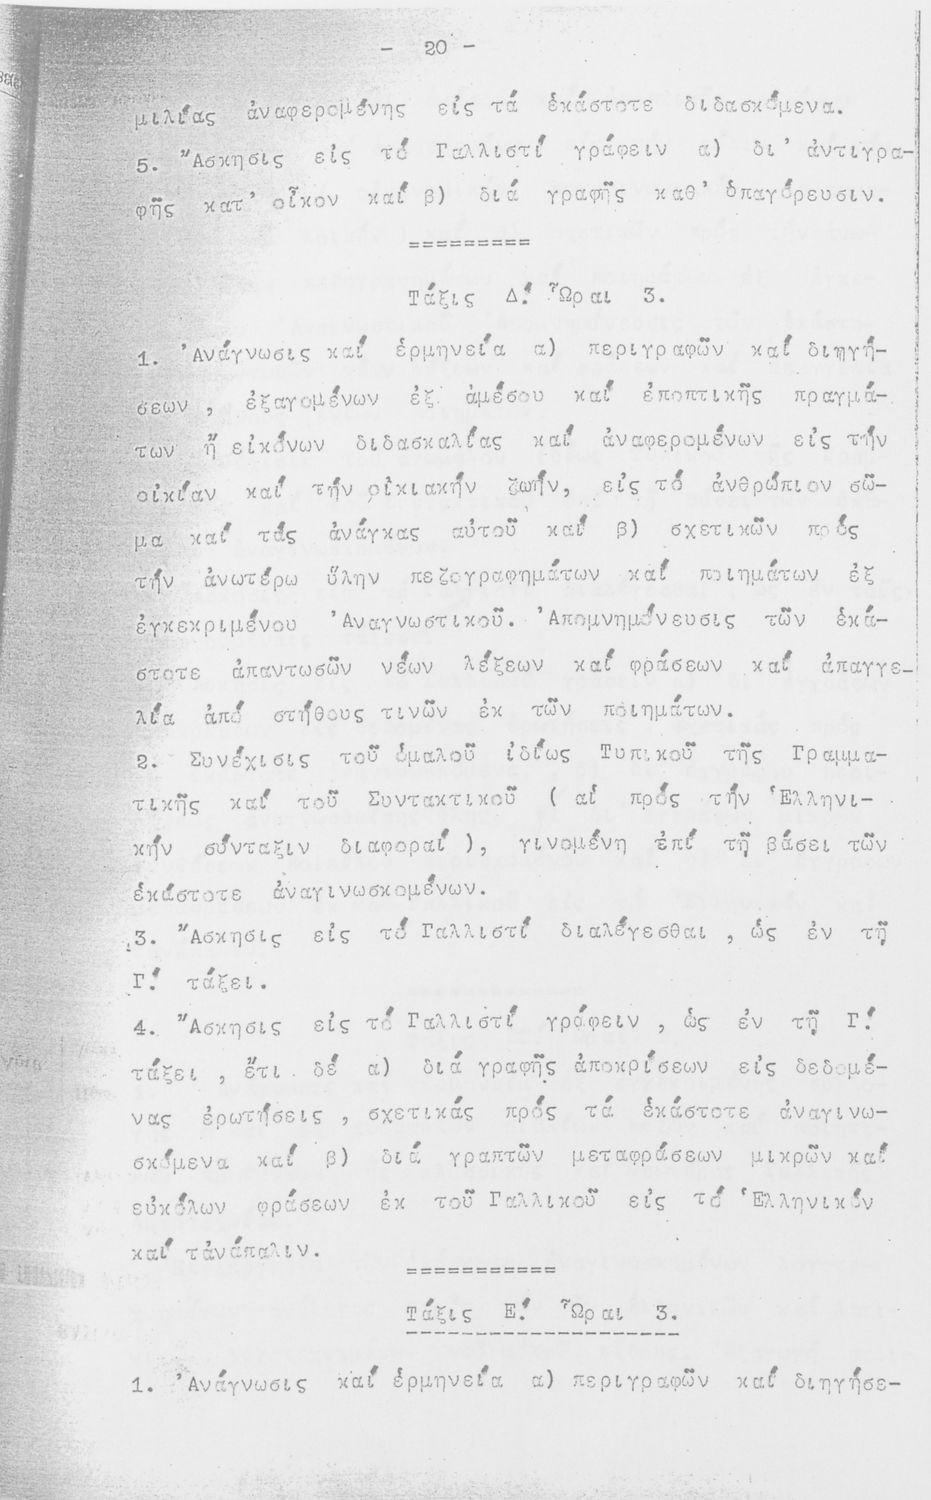 - 20 -
μιλίας ἀναφερομένης εἰς τά ἑκάστοτε διδασκόμενα.
5. Ἄσκησις εἰς τό Γαλλιστί γράφειν α) δι' ἀντιγρα-
φῆς κατ' οἶκον καί β) διά γραφῆς καθ' ὑπαγόρευσιν.
=========
Τάξις Δ.' Ὧραι 3.
1. Ἀνάγνωσις καί ἑρμηνεία α) περιγραφῶν καί διηγή-
σεων , ἐξαγομένων ἐξ ἀμέσου καί ἐποπτικῆς πραγμά-
των ἤ εἰκόνων διδασκαλίας καί ἀναφερομένων εἰς τήν
οἰκίαν καί τήν οἰκιακήν ζωήν, εἰς τό ἀνθρώπιον σῶ-
μα καί τάς ἀνάγκας αὐτοῦ καί β) σχετικῶν πρός
τήν ἀνωτέρω ὕλην πεζογραφημάτων καί ποιημάτων ἐξ
ἐγκεκριμένου Ἀναγνωστικοῦ. Ἀπομνημόνευσις τῶν ἑκά-
στοτε ἀπαντωσῶν νέων λέξεων καί φράσεων καί ἀπαγγε-
λία ἀπό στήθους τινῶν ἐκ τῶν ποιημάτων.
2. Συνέχισις τοῦ ὁμαλοῦ ἰδίως Τυπικοῦ τῆς Γραμμα-
τικῆς καί τοῦ Συντακτικοῦ ( αἱ πρός τήν Ἑλληνι-
κήν σύνταξιν διαφοραί ), γινομένη ἐπί τῇ βάσει τῶν
ἑκάστοτε ἀναγινωσκομένων.
3. Ἄσκησις εἰς τό Γαλλιστί διαλέγεσθαι , ὡς ἐν τῇ
Γ.' τάξει.
4. Ἄσκησις εἰς τό Γαλλιστί γράφειν , ὡς ἐν τῇ Γ.'
τάξει , ἔτι δέ α) διά γραφῆς ἀποκρίσεων εἰς δεδομέ-
νας ἐρωτήσεις , σχετικάς πρός τά ἑκάστοτε ἀναγινω-
σκόμενα καί β) διά γραπτῶν μεταφράσεων μικρῶν καί
εὐκόλων φράσεων ἐκ τοῦ Γαλλικοῦ εἰς τό Ἑλληνικόν
καί τἀνάπαλιν.
===========
Τάξις Ε.' Ὧραι 3.
1. Ἀνάγνωσις καί ἑρμηνεία α) περιγραφῶν καί διηγήσε-